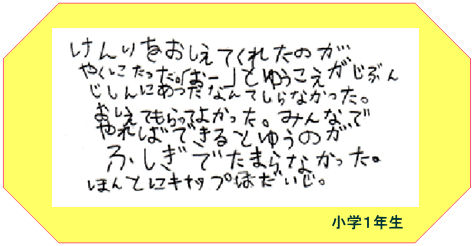 けんりをおしえてくれたのが
やくにたった。「おー」とゆうこえがじぶん
じしんにあったなんてしらなかった。
おしえてもらってよかった。みんなで
やればできるとゆうのが
ふしぎでたまらなかった。
ほんとにキャップはだいじ。
小学1年生